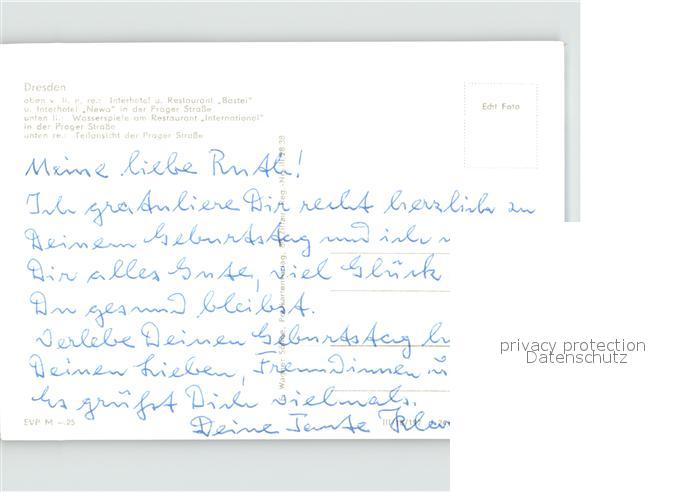 Dresden
oben v. li. n. re.: Interhotel u. Restaurant „Bastei"
u. Interhotel „Newa" in der Prager Straße
unten li.: Wasserspiele am Restaurant „International"
in der Prager Straße
unten re.: Teilansicht der Prager Straße
Echt Foto
Meine liebe Ruth!
Ich gratuliere Dir recht herzlich zu
Deinem Geburtstag und ich
Dir alles Gute, viel Glück
Du gesund bleibst.
Verlebe Deinen Geburtstag
Deinen Lieben, Freundinnen u
Es grüßt Dich vielmals.
Deine Tante
EVP M –.25
privacy protection
Datenschutz